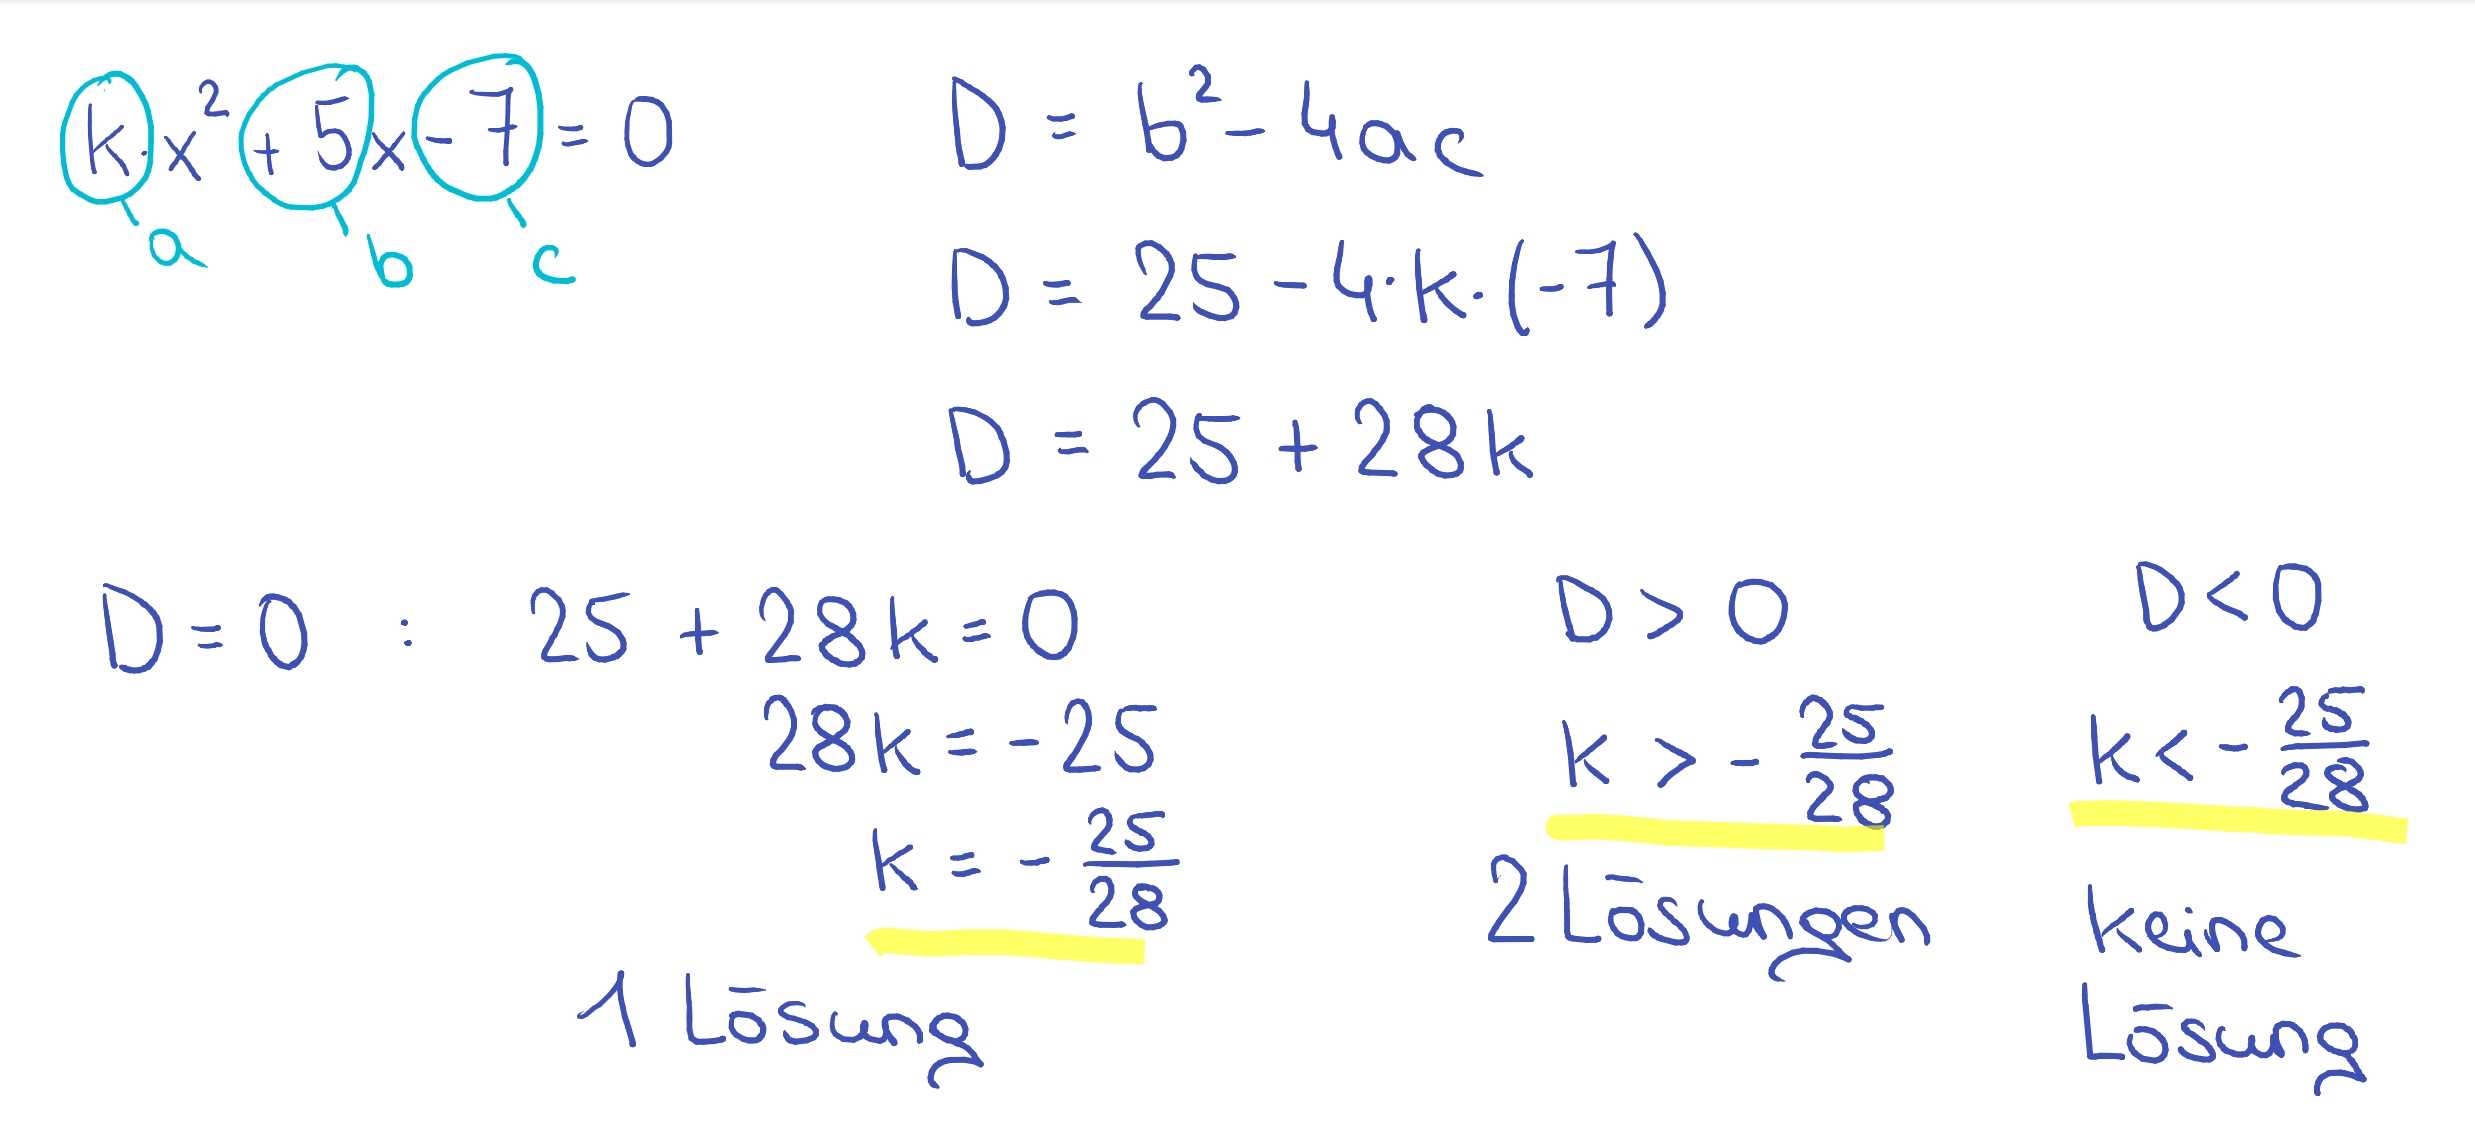 k·x² + 5x - 7 = 0
a b c
D = b² - 4ac
D = 25 - 4·k·(-7)
D = 25 + 28k
D = 0 : 25 + 28k = 0
28k = -25
k = - 25/28
1 Lösung
D > 0
k > - 25/28
2 Lösungen
D < 0
k < - 25/28
keine
Lösung